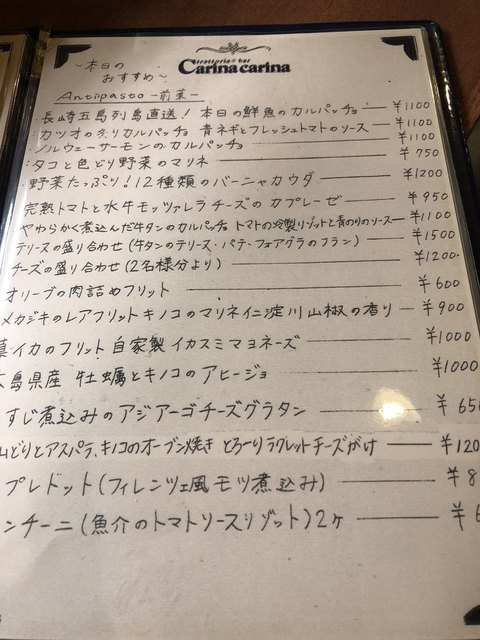 trattoria & bar
Carina carina
～本日の
おすすめ～
Antipasto －前菜－
・長崎五島列島直送！本日の鮮魚のカルパッチョ ¥1100
・カツオの炙りカルパッチョ 青ネギとフレッシュトマトのソース ¥1100
・ノルウェーサーモンのカルパッチョ ¥1100
・タコと色どり野菜のマリネ ¥750
・野菜たっぷり！12種類のバーニャカウダ ¥1200
・完熟トマトと水牛モッツァレラチーズのカプレーゼ ¥950
やわらかく煮込んだ牛タンのカルパッチョ トマトの冷製リゾットと青のりのソース ¥1100
テリーヌの盛り合わせ(牛タンのテリーヌ・パテ・フォアグラのフラン) ¥1500
チーズの盛り合わせ(2名様分より) ¥1200
オリーブの肉詰めフリット ¥600
メカジキのレアフリットキノコのマリネ仁淀川山椒の香り ¥900
イカのフリット自家製イカスミマヨネーズ ¥1000
島県産 牡蠣とキノコのアヒージョ ¥1000
すじ煮込みのアジアーゴチーズグラタン ¥650
どりとアスパラ、キノコのオーブン焼き とろ～りラクレットチーズがけ ¥120
プレドット(フィレンツェ風モツ煮込み) ¥8
ンチーニ(魚介のトマトソースリゾット)2ケ ¥6